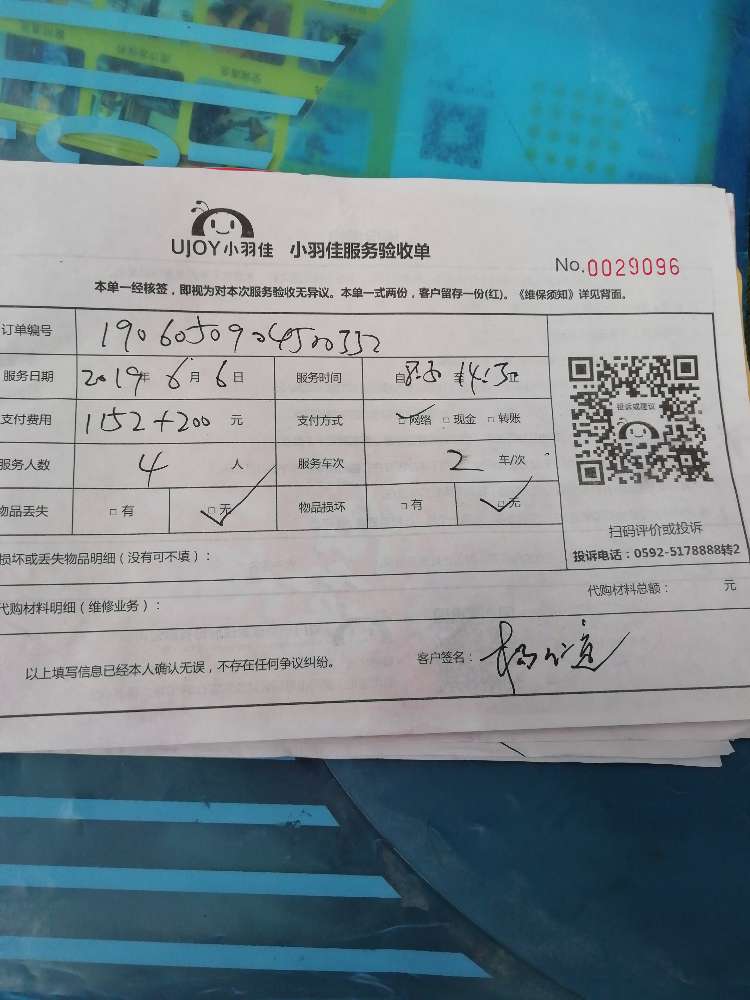 UJOY小羽佳 小羽佳服务验收单
No.0029096
本单一经核签，即视为对本次服务验收无异议。本单一式两份，客户留存一份(红)。《维保须知》详见背面。
订单编号 1906050904500332
服务日期 2019年6月6日 服务时间 自8:30至14:3止
支付费用 1152+200元 支付方式 □网络 □现金 □转账
服务人数 4人 服务车次 2车/次
物品丢失 □有 □无 物品损坏 □有 □无
投诉或建议
扫码评价或投诉
投诉电话：0592-5178888转2
损坏或丢失物品明细（没有可不填）：
代购材料明细（维修业务）： 代购材料总额： 元
以上填写信息已经本人确认无误，不存在任何争议纠纷。 客户签名：